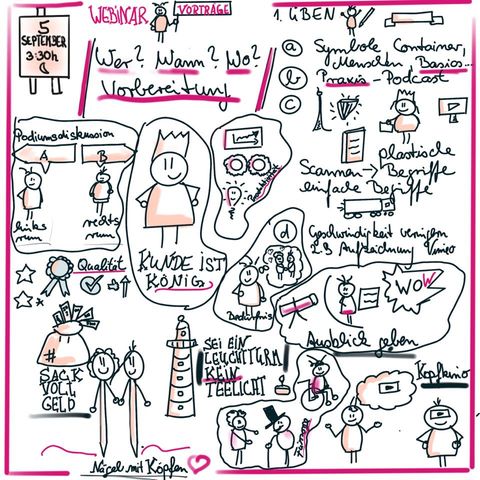 5
SEPTEMBER
3:30h
WEBINAR
VORTRÄGE
Wer? Wann? Wo?
Vorbereitung
1. ÜBEN
a Symbole, Container,
Menschen, Basics...
b Praxis-Podcast
c
Podiumsdiskussion
A
B
links
rum
rechts
rum
KUNDE IST
KÖNIG
plastische
Scannen → Begriffe
einfache Begriffe
d
Geschwindigkeit verringern
z.B. Aufzeichnung
Qualität
Bedürfnis
WOW
Ausblick geben
#
SACK
VOLL
GELD
SEI EIN
LEUCHTTURM
KEIN
TEELICHT
Kopfkino
Nägel mit Köpfen